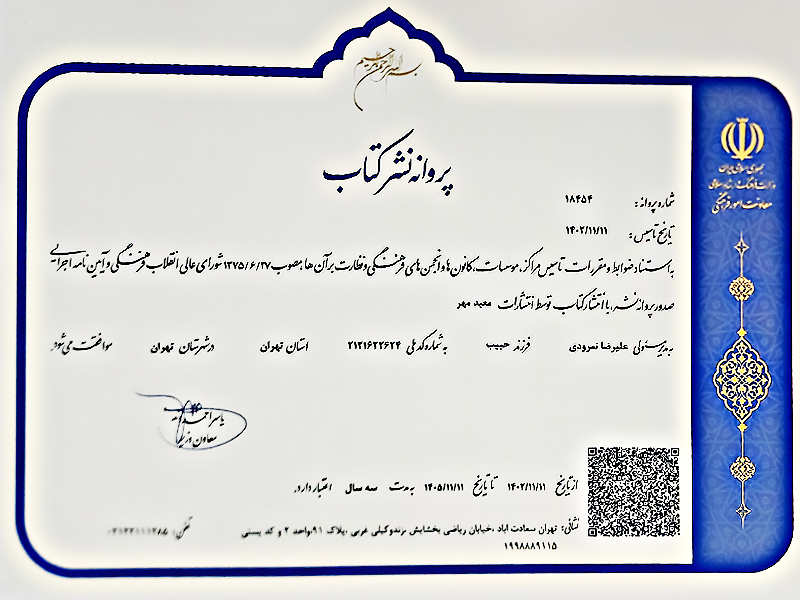 بسم الله الرحمن الرحیم
پروانه نشر کتاب
جمهوری اسلامی ایران
وزارت فرهنگ و ارشاد اسلامی
معاونت امور فرهنگی
شماره پروانه: ۱۸۴۵۴
تاریخ تاسیس: ۱۴۰۲/۱۱/۱۱
به استناد ضوابط و مقررات تاسیس مراکز، موسسات، کانون ها و انجمن های فرهنگی و نظارت بر آن ها مصوب ۱۳۷۵/۶/۲۷ شورای عالی انقلاب فرهنگی و آیین نامه اجرایی
صدور پروانه نشر، با انتشار کتاب توسط انتشارات معبد مهر
به مدیر مسئولی علیرضا نمرودی فرزند حبیب به شماره کد ملی ۲۱۲۱۶۲۲۶۲۴ استان تهران در شهرستان تهران موافقت می شود
یاسر احمدوند
معاون وزیر
از تاریخ ۱۴۰۲/۱۱/۱۱ تا تاریخ ۱۴۰۵/۱۱/۱۱ به مدت سه سال اعتبار دارد.
نشانی: تهران سعادت آباد ،خیابان ریاضی بخشایش ،برندوکیلی غربی ،پلاک ۹۱،واحد ۲ و کد پستی
۱۹۹۸۸۸۹۱۱۵
تلفن: